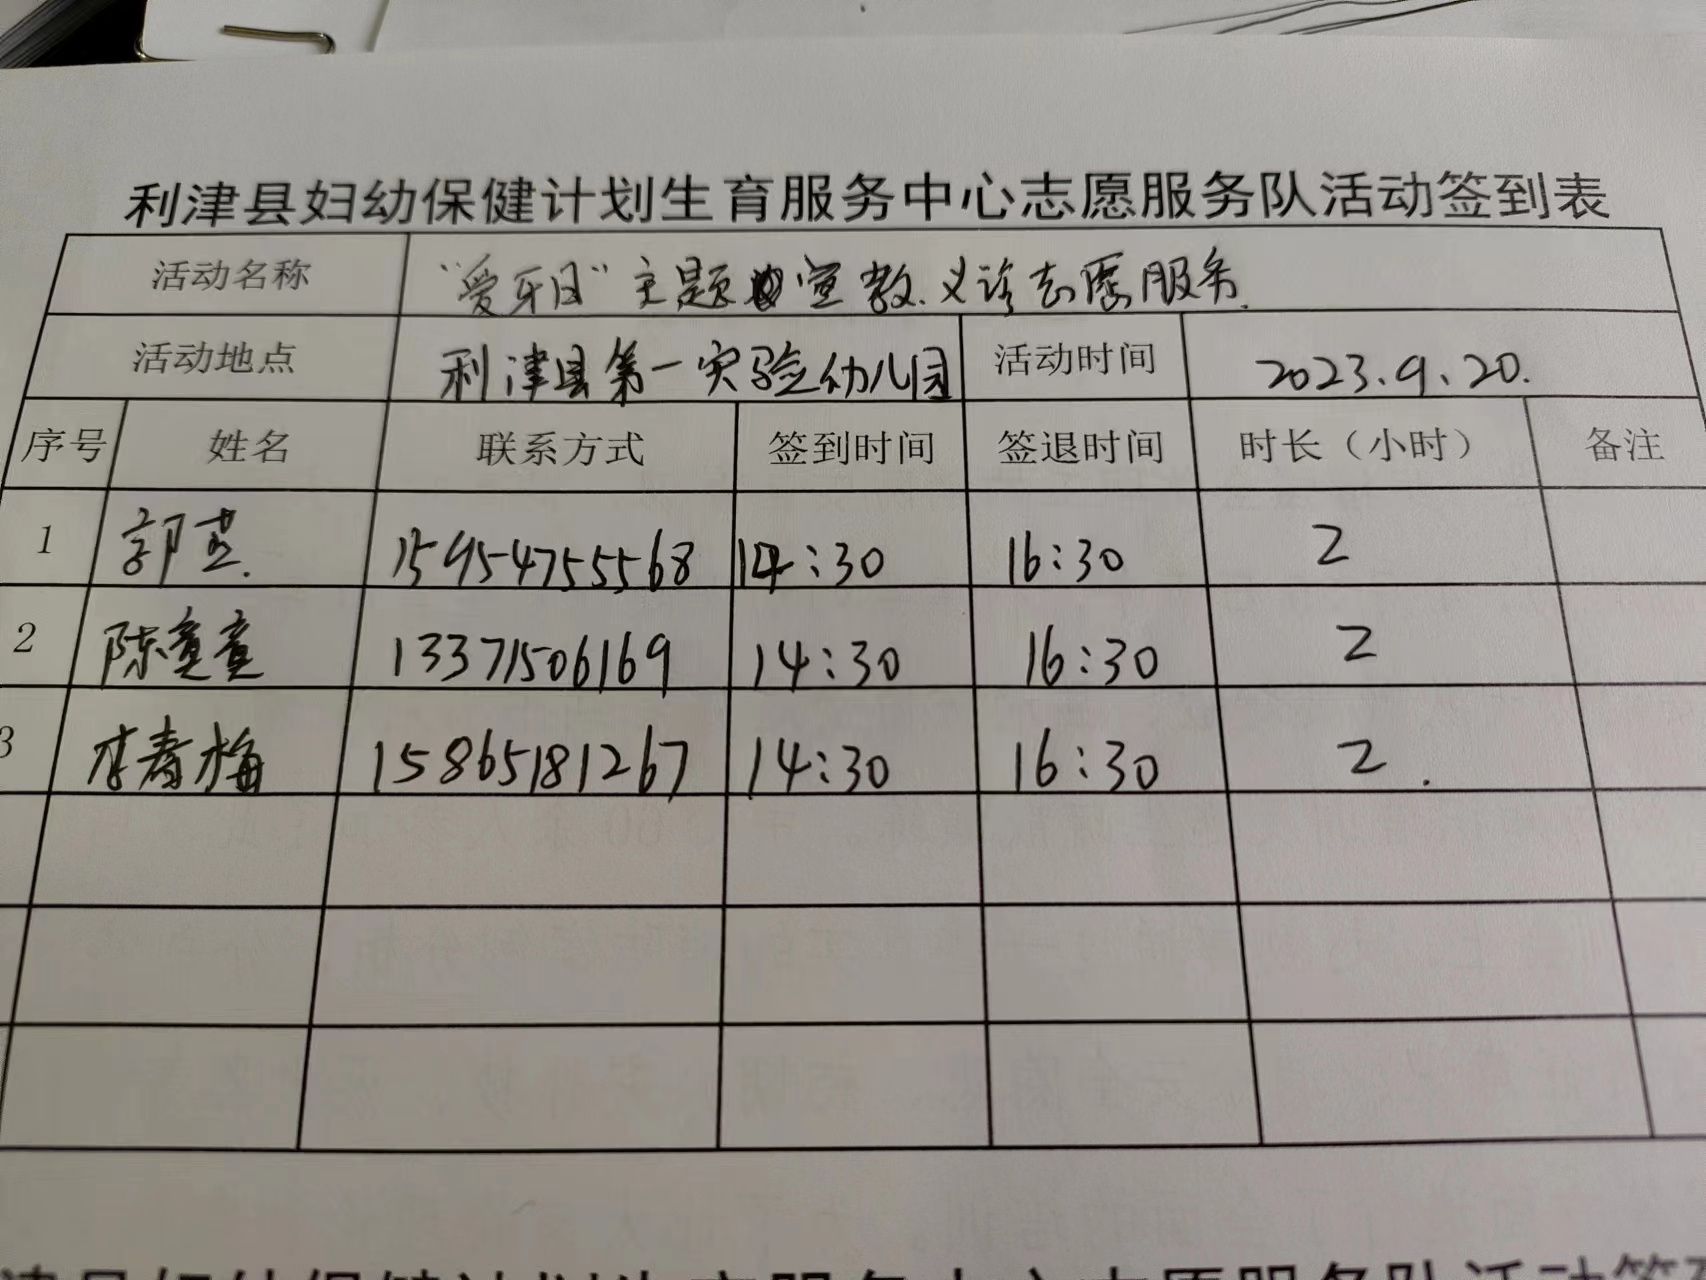 利津县妇幼保健计划生育服务中心志愿服务队活动签到表
活动名称 “爱牙日”主题宣教、义诊志愿服务
活动地点 利津县第一实验幼儿园 活动时间 2023.9.20.
序号 姓名 联系方式 签到时间 签退时间 时长（小时） 备注
1 郭芸 15954755568 14:30 16:30 2
2 陈童童 13371506169 14:30 16:30 2
3 李春梅 15865181267 14:30 16:30 2.
津县妇幼保健计划生育服务中心志愿服务队活动签到